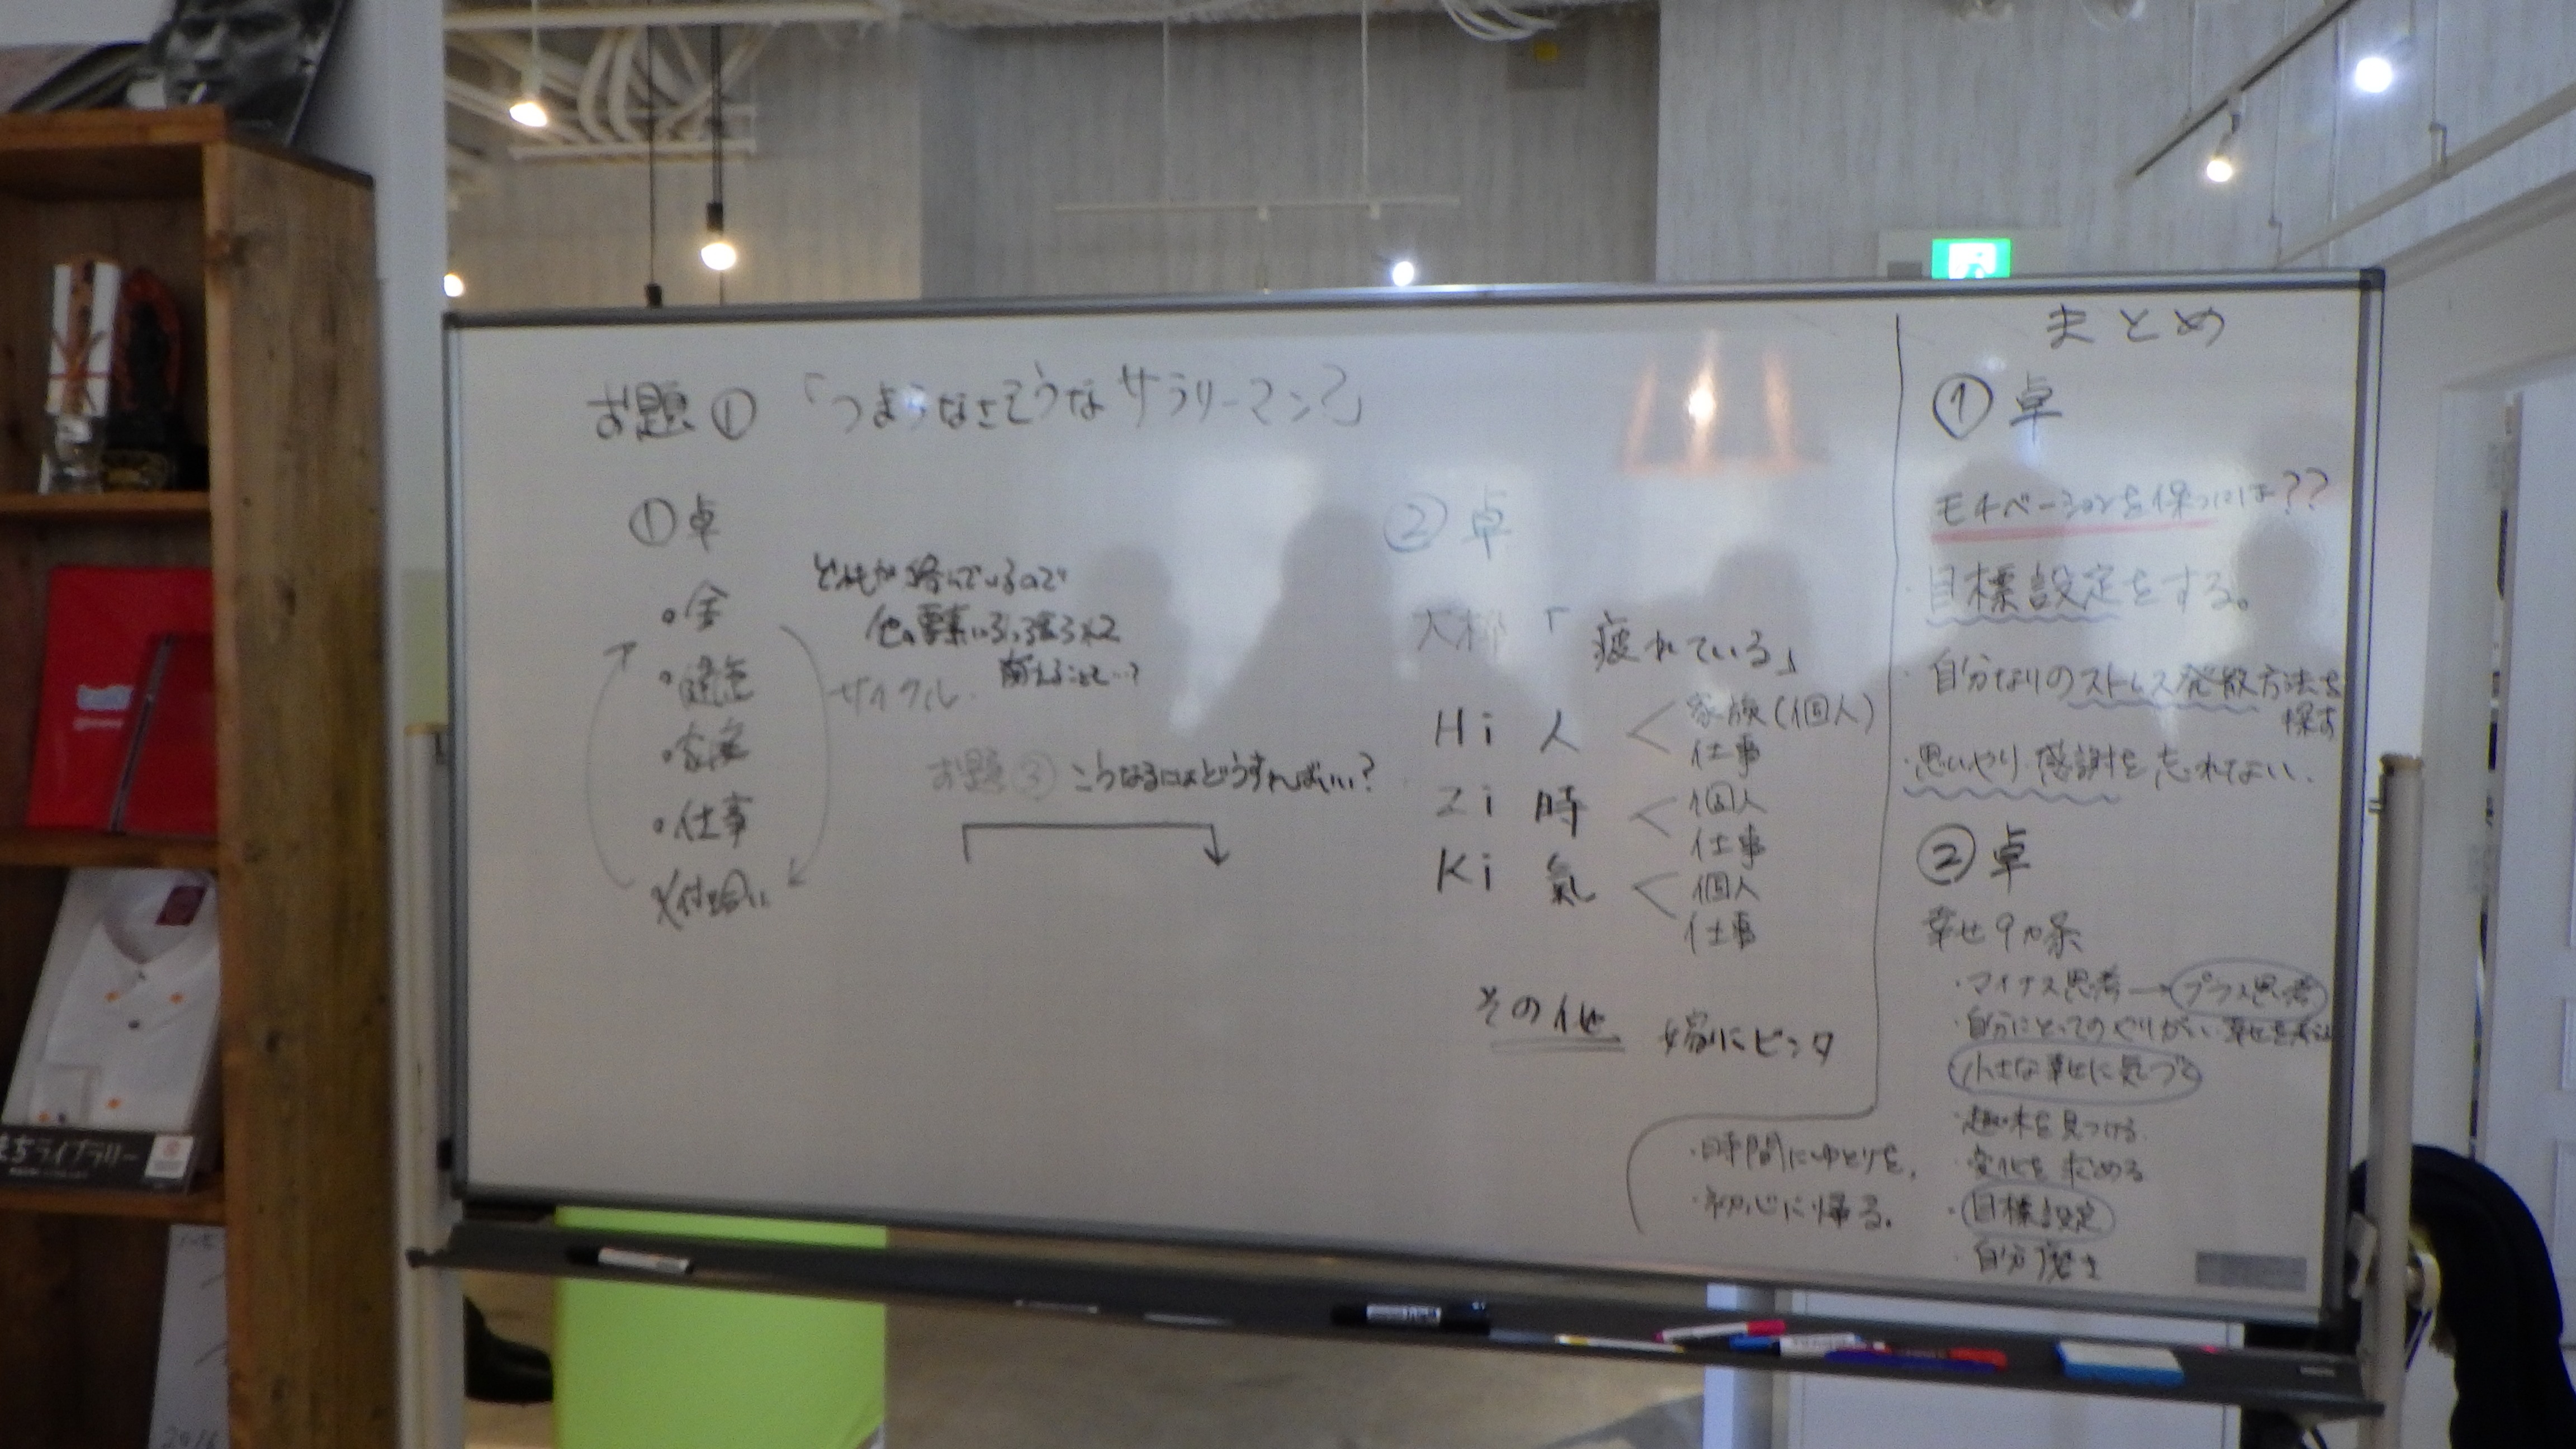 お題① 「つまらなさそうなサラリーマン?」
①卓
・金
・健康
・家庭
・仕事
・付き合い
どれも絡んでいるので
サイクル
お題③ こうなるにはどうすればいい?
②卓
「疲れている」
Hi 人 家族(個人)
仕事
Zi 時 個人
仕事
Ki 氣 個人
仕事
その他 嫁にビンタ
・時間にゆとりを。
・初心に帰る。
まとめ
①卓
モチベーションを保つには??
・目標設定をする。
・自分なりのストレス発散方法を
探す
・思いやり・感謝を忘れない。
②卓
幸せ9カ条
・マイナス思考→プラス思考
・自分にとってのやりがい 幸せを
小さな幸せに気づく
・趣味を見つける。
・変化を求める
・目標設定
・自分
まちライブラリー